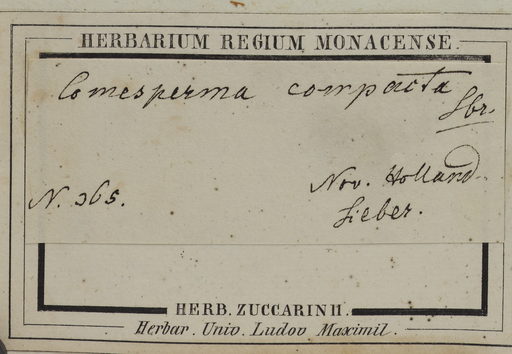 HERBARIUM REGIUM MONACENSE.
Comesperma compacta
Sbr.
Nov. Holland.
N. 365.
Sieber.
HERB. ZUCCARINII.
Herbar. Univ. Ludov Maximil.